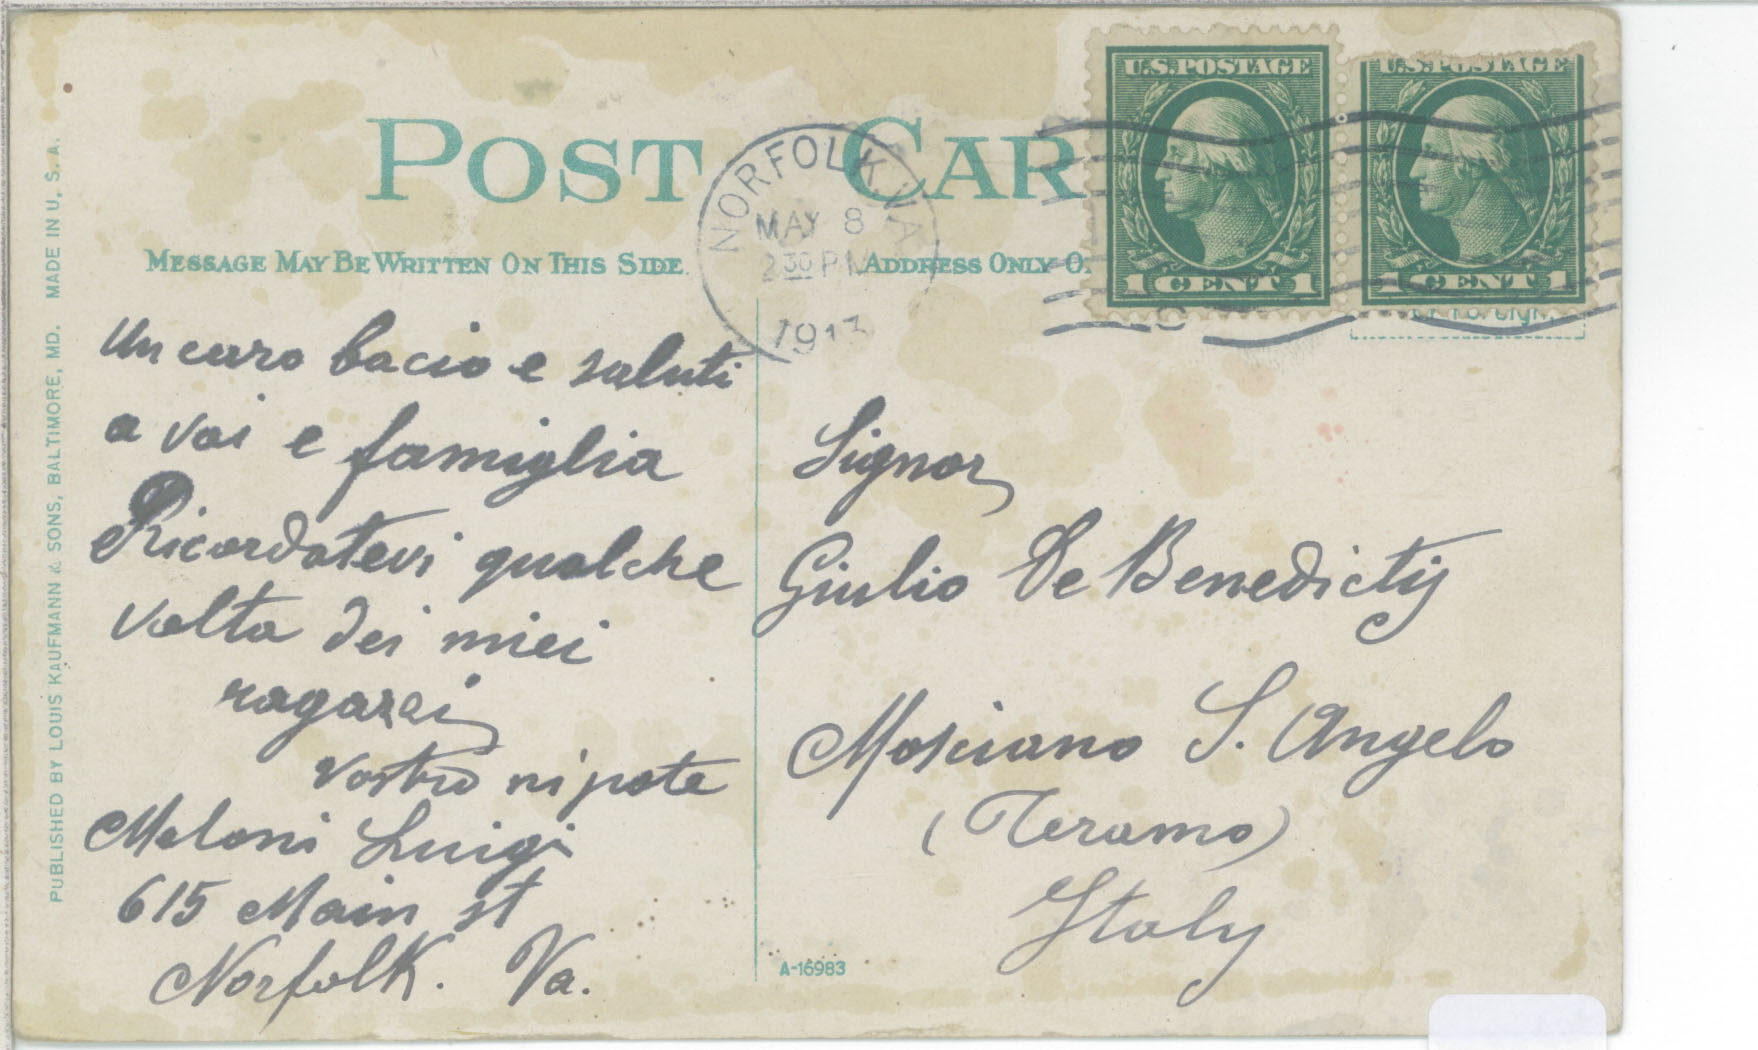 POST CAR
MESSAGE MAY BE WRITTEN ON THIS SIDE.
ADDRESS ONLY O
NORFOLK, VA.
MAY 8
2 30 PM
1913
U.S. POSTAGE
1 CENT 1
U.S. POSTAGE
1 CENT 1
Un caro bacio e saluti
a voi e famiglia
Ricordatevi qualche
volta dei miei
ragazzi
vostro nipote
Meloni Luigi
615 Main st
Norfolk. Va.
Signor
Giulio De Benedictis
Mosciano S. Angelo
(Teramo)
Italy
A-16983
PUBLISHED BY LOUIS KAUFMANN & SONS, BALTIMORE, MD. MADE IN U. S. A.